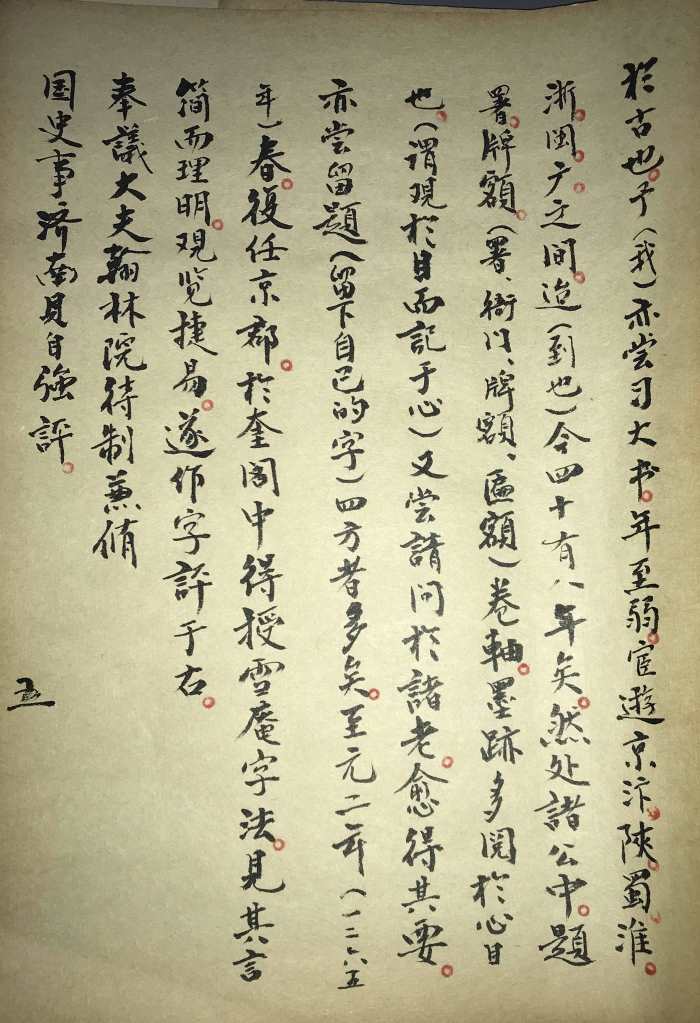 於古也。予（我）亦尝习大书。年至弱。宦遊京汴。陕。蜀。淮。
浙。闽。广。之间。迨（到也）今四十有八年矣。然处諸公中。題
署。牌額。（署、衙门、牌額、匾额）卷軸。墨跡多阅於心目
也。（謂現於目而記于心）又尝請问於諸老。愈得其要。
亦尝留題（留下自己的字）四方者多矣。至元二年（一二六五
年）春。復任京郡。於奎阁中得授雪庵字法。見其言
简而理明。观览捷易。遂作字評于右。
奉議大夫翰林院待制兼脩
国史事济南貝自強評。
五